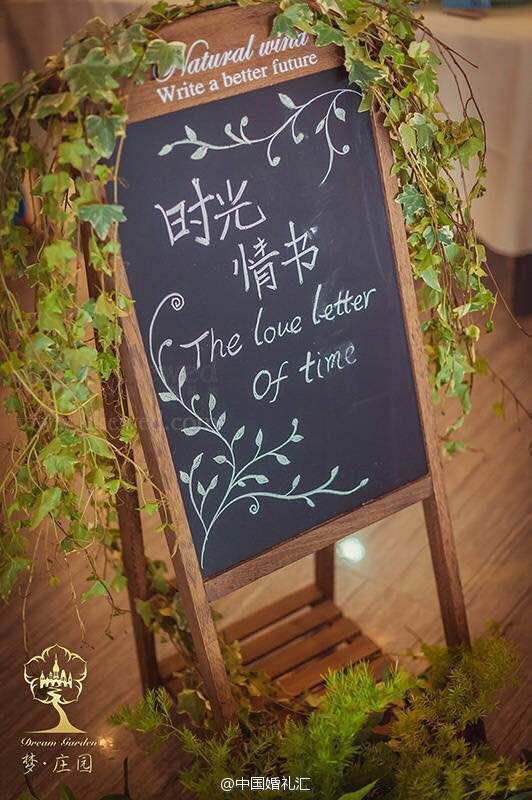 Natural wind
Write a better future
时光
情书
The love letter
Of time
Dream Garden
梦·庄园
@中国婚礼汇